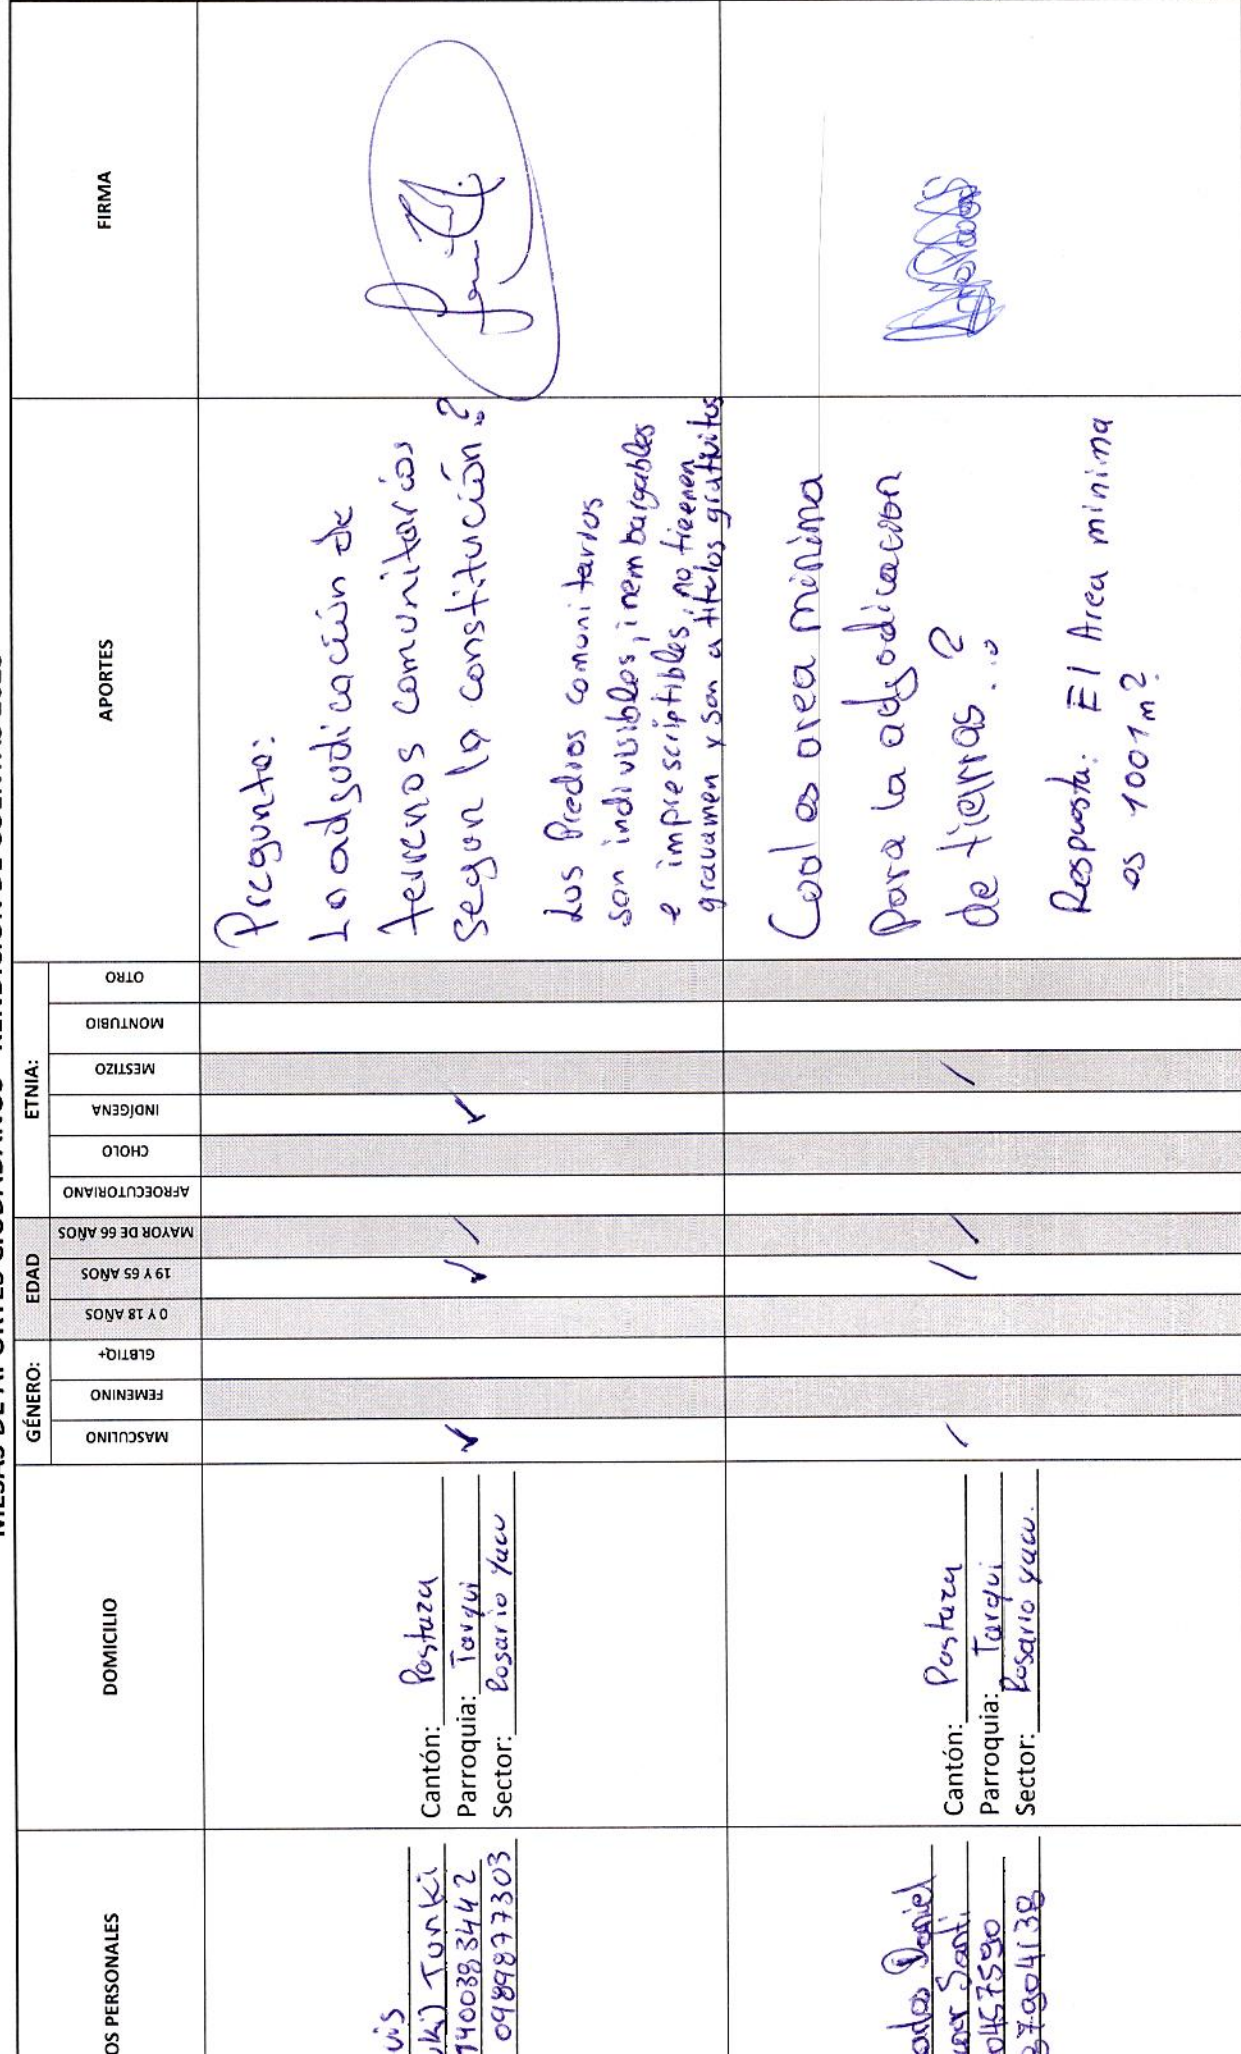 OS PERSONALES
DOMICILIO
GÉNERO:
MASCULINO
FEMENINO
GLBTIQ+
EDAD
0 Y 18 AÑOS
19 Y 65 AÑOS
MAYOR DE 66 AÑOS
ETNIA:
AFROECUTORIANO
CHOLO
INDÍGENA
MESTIZO
MONTUBIO
OTRO
APORTES
FIRMA
vis
uki) Tunki
0989877303
Cantón: Pastaza
Parroquia: Tarqui
Sector: Rosario Yacu
Pregunta:
La adjudicación de
terrenos comunitarios
Segun la constitución?
Los Predios comunitarios
son indivisibles, inembargables
e imprescriptibles, no tienen
gravamen y son a títulos gratuitos
ados Daniel
Santi
0457590
37904138
Cantón: Pastaza
Parroquia: Tarqui
Sector: Rosario yacu.
Cual es area minima
para la adjudicacion
de tierras...?
Respuesta: El Area minima
es 1001m2